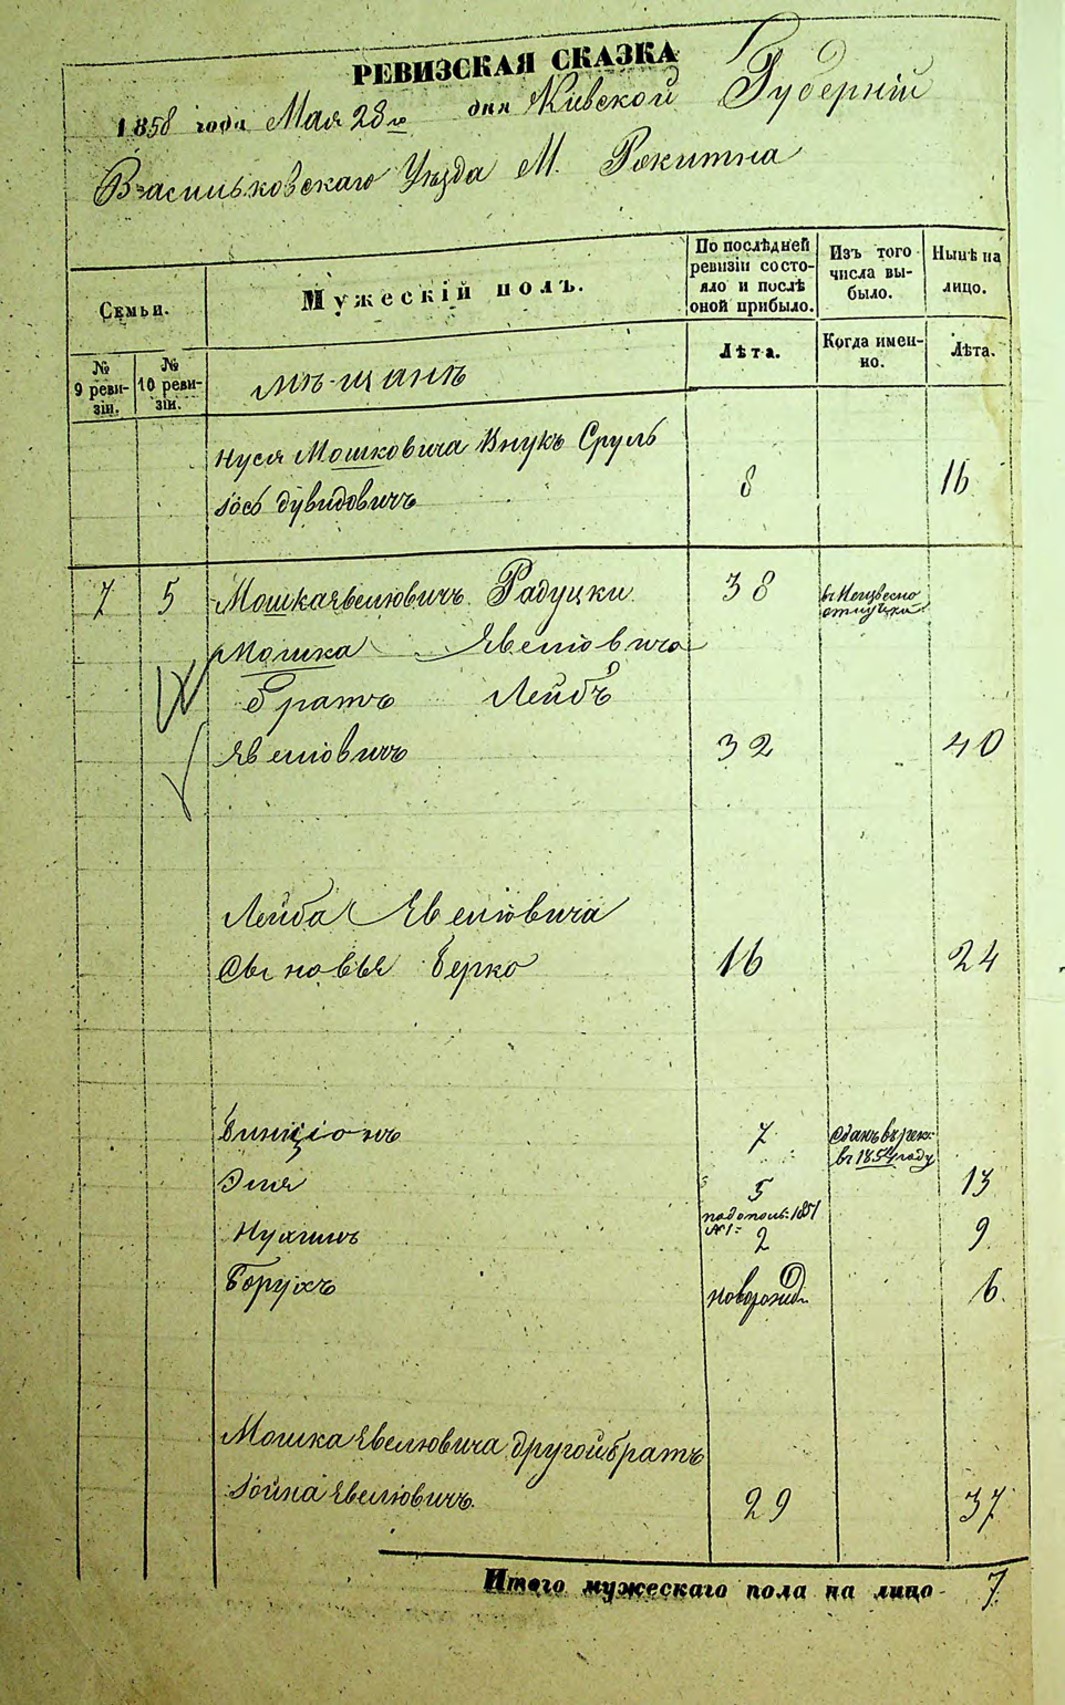 РЕВИЗСКАЯ СКАЗКА
1858 года Мая 28го дня Кіевской Губерніи
Васильковскаго Уѣзда М. Рокитна
Семьи.
Мужескій полъ.
По послѣдней ревизіи состояло и послѣ оной прибыло.
Изъ того числа выбыло.
Нынѣ на лицо.
№ 9 ревизіи.
№ 10 ревизіи.
мѣщанѣ
Лѣта.
Когда именно.
Лѣта.
Нуся Мошковича Внукъ Сруль
Іось Дувидовичъ 8 16
7 5 Мошка Явелювичъ Радуцки 38 въ Неизвесно отлучки
Мошка Явелювича
братъ Лейбъ
Явелювичъ 32 40
Лейба Явелювича
Сыновья Берко 16 24
Бинціонъ 7 Сданъ въ рек: въ 1854 году
Эля 5 13
по дополн: 1851 №1:
Нухимъ 2 9
Борухъ новорожд. 6.
Мошка Явелювича другой братъ
Іойна Явелювичъ. 29 37
Итого мужескаго пола на лицо 7